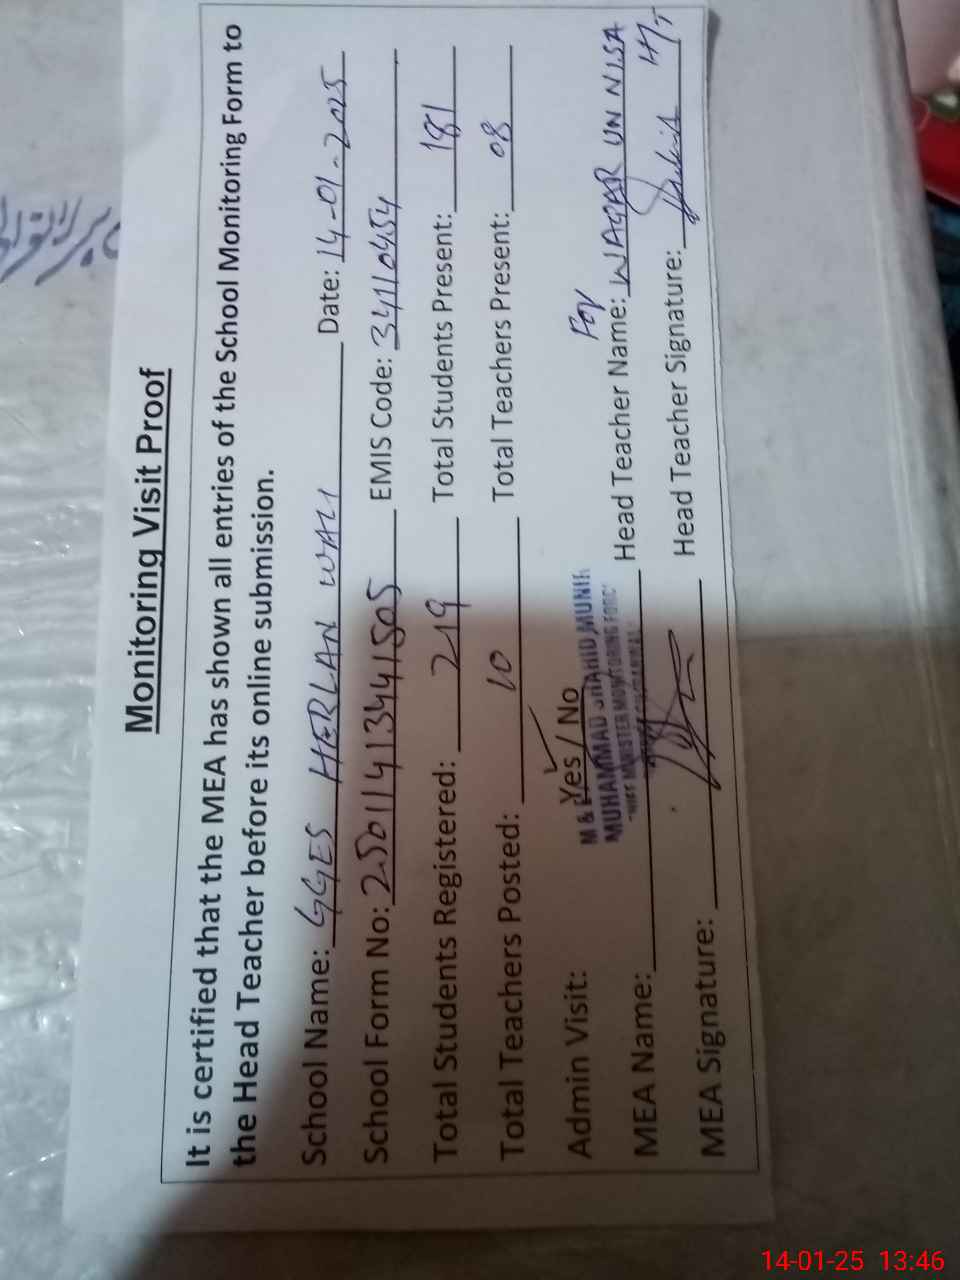 Monitoring Visit Proof
It is certified that the MEA has shown all entries of the School Monitoring Form to
the Head Teacher before its online submission.
School Name: GGES HERLAN WALI Date: 14-01-2025
School Form No: 25011413441505 EMIS Code: 34110454
Total Students Registered: 219 Total Students Present: 181
Total Teachers Posted: 10 Total Teachers Present: 08
Admin Visit: Yes / No
M & E
MUHAMMAD SHAHID MUNIR
MINISTER MONITORING FORC
For
MEA Name: Head Teacher Name: WAQAR UN NISA
MEA Signature: Head Teacher Signature: H/T
14-01-25 13:46